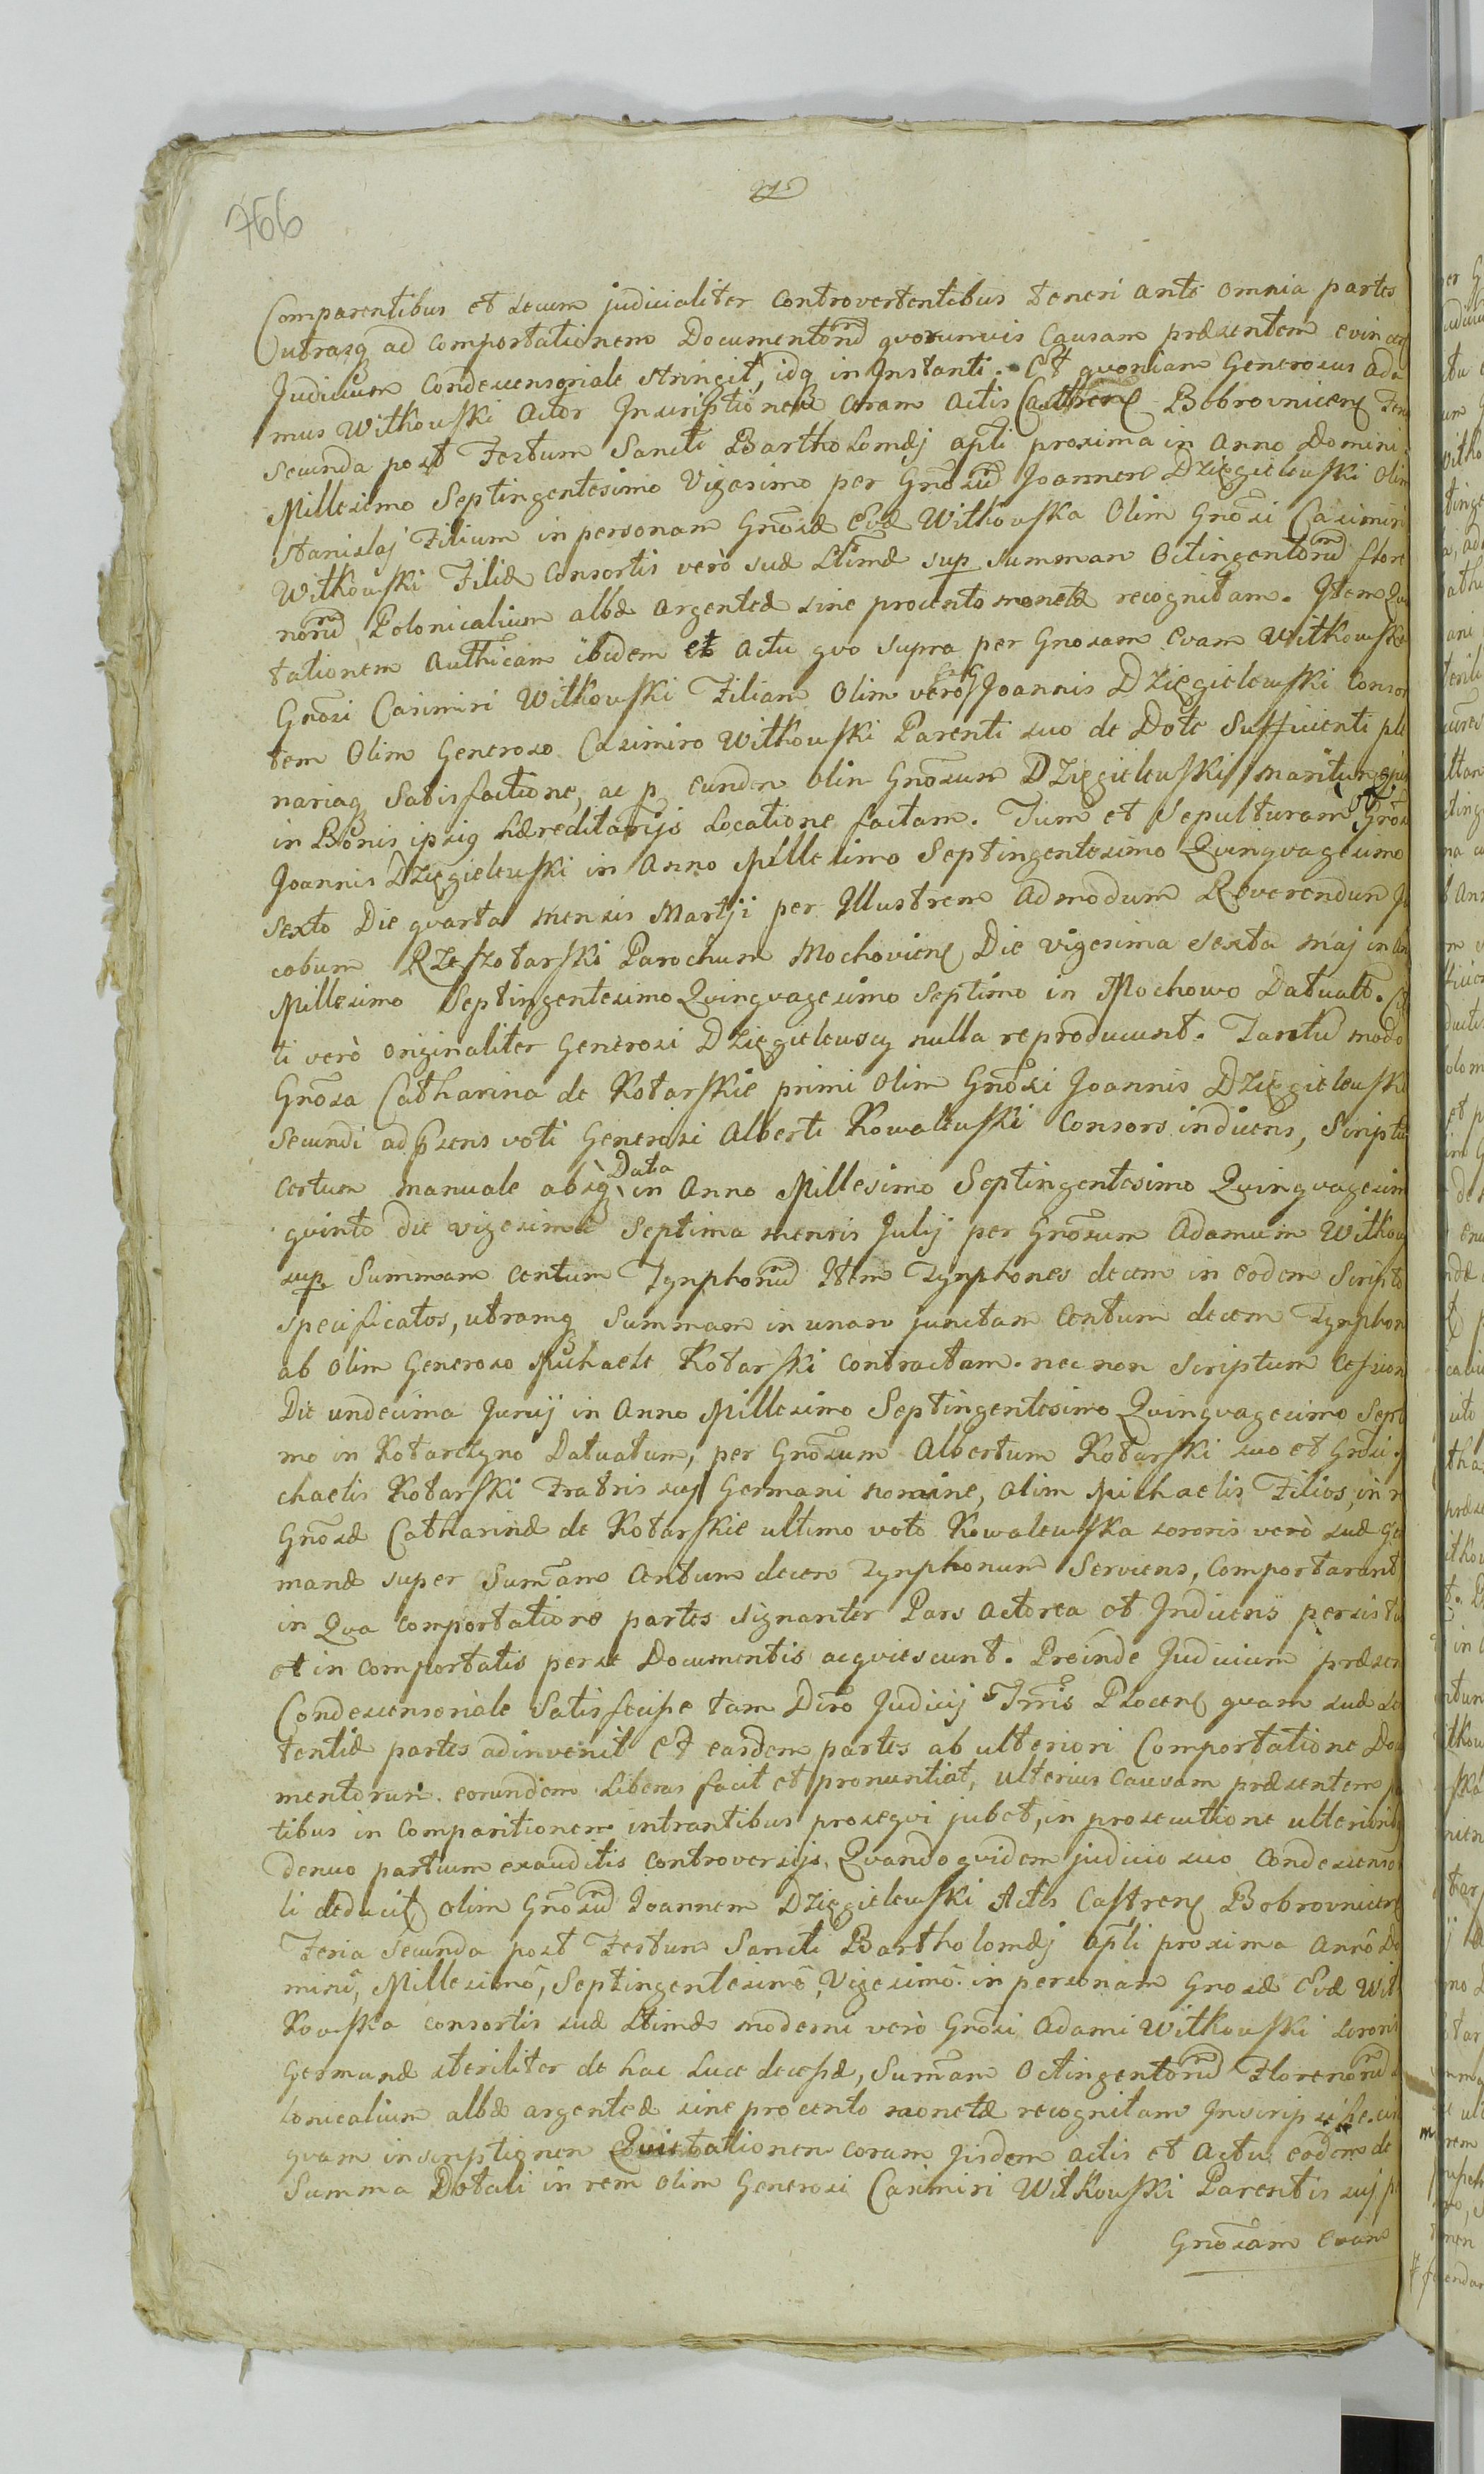 766
Comparentibus et secum judicialiter Controvertentibus teneri ante omnia partes
utrasq ad comportationem Documentorū quorumvis Causam præsentem evincen
Judicium Condescensoriale stringit, idq in Instanti. Et quoniam Generosus Ada
mus Witkowski Actor Inscriptionem coram Actis Castren Bobrovnicen Feri
secunda post Festum Sancti Bartholomæj apli proxima in Anno Domini
Millesimo Septingentesimo Vigesimo per Gnosū Joannem Dzięgielewski Olim
Stanislaj Filium in personam Gnosæ Evæ Witkowska Olim Gnosi Casimiri
Witkowski Filiæ Consortis verò suæ Ltimæ sup summam Octingentorū flore
norū Polonicalium albæ argenteæ sine procento monetæ recognitam. Item Qui
tationem Authicam ibidem et Actu quo supra per Gnosam Evam Witkowska
Gnosi Casimiri Witkowski Filiam Olim verò Joannis Dzięgielewski Consor
tem Olim Generoso Casimiro Witkowski Parenti suo de Dote Sufficienti ple
nariaq Satisfactione, ac p eundem olim Gnosum Dzięgielewski maritum ejus
in Bonis ipsiq hæreditarijs Locatione factam. Tum et Sepulturam Gnosi
Joannis Dzięgielewski in Anno Millesimo Septingentesimo Quinquagesimo
Sexto Die quarta mensis Martji per Illustrem Admodum Reverendum Ja
cobum Rzeszotarski Parochum Mochovien Die vigesima sexta Maj in An
Millesimo Septingentesimo Quinquagesimo Septimo in Mochowo Datuatt. Ci
ti verò originaliter Generosi Dzięgielewscy nulla reproducunt. Tantū modo
Gnosa Catharina de Kotarskie primi Olim Gnosi Joannis Dzięgielewski
secundi ad psens voti Generosi Alberti Kowalewski Consors inducens, Scriptu
certum manuale absq Data in Anno Millesimo Septingentesimo Quinquagesim
quinto die vigesima Septima mensis Julij per Gnosum Adamum Witkow
sup Summam Centum Tynphonū Item Tynphones decem in eodem Scripto
specificatos, utramq Summam in unam junctam Centum decem Tynphon
ab olim Generoso Michaele Kotarski contractam. nec non Scriptum Cession
Die undecima Junij in Anno Millesimo Septingentesimo Quinquagesimo Sept
mo in Kotarczyno Datuatum, per Gnosum Albertum Kotarski suo et Gnosi
chaelis Kotarski Fratris suj Germani nomine, olim Michaelis Filios, in r
Gnosæ Catharinæ de Kotarskie ultimo voto Kowalewska sororis verò suæ Ge
manæ super Sumam Centum decem Tynphonum Serviens, Comportarunt
in Qua Comportatione partes signanter Pars Actorea et Inducens persistu
et in comportatis per se Documentis acquiescunt. Proinde Judicium præsen
Condescensoriale Satisfecisse tam Dīro Judicij Trris Plocen quam suæ se
tentiæ partes adinvenit Et easdem partes ab ulteriori Comportatione Docu
mentorum eorundem Liberas facit et pronuntiat, ulterius Causam præsentem p
tibus in Comparitionem intrantibus prosequi jubet, in prosecutione ulteriorib
denuo partium exauditis Controversijs, Quandoquidem judicio suo Condescenso
li deducit olim Gnosū Joannem Dzięgielewski Actis Castren Bobrovnicen
Feria Secunda post Festum Sancti Bartholomæj apli proxima Annô Do
mini, Millesimô, Septingentesimô, Vigesimô in personam Gnosæ Evæ Wit
kowska consortis suæ Ltimæ moderni verò Gnosi Adami Witkowski sororis
Germanæ steriliter de hac Luce decessæ, Sumam Octingentorū Florenorū
lonicalium albæ argenteæ sine procento monetæ recognitam Inscripsisse. un
quam inscriptionem Quietationem coram jisdem actis et Actu eodem de
Summa Dotali in rem olim Generosi Casimiri Witkowski Parentis suj p
Gnosam Evam